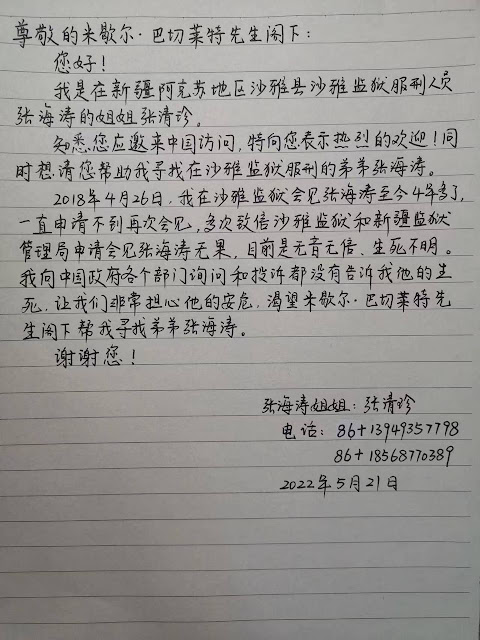 尊敬的米歇尔·巴切莱特先生阁下：
您好！
我是在新疆阿克苏地区沙雅县沙雅监狱服刑人员
张海涛的姐姐张清珍。
知悉您应邀来中国访问，特向您表示热烈的欢迎！同
时想请您帮助我寻找在沙雅监狱服刑的弟弟张海涛。
2018年4月26日，我在沙雅监狱会见张海涛至今4年多了，
一直申请不到再次会见，多次致信沙雅监狱和新疆监狱
管理局申请会见张海涛无果，目前是无音无信、生死不明。
我向中国政府各个部门询问和投诉都没有告诉我他的生
死，让我们非常担心他的安危，渴望米歇尔·巴切莱特先
生阁下帮我寻找弟弟张海涛。
谢谢您！
张海涛姐姐：张清珍
电话：86+13949357798
86+18568770389
2022年5月21日